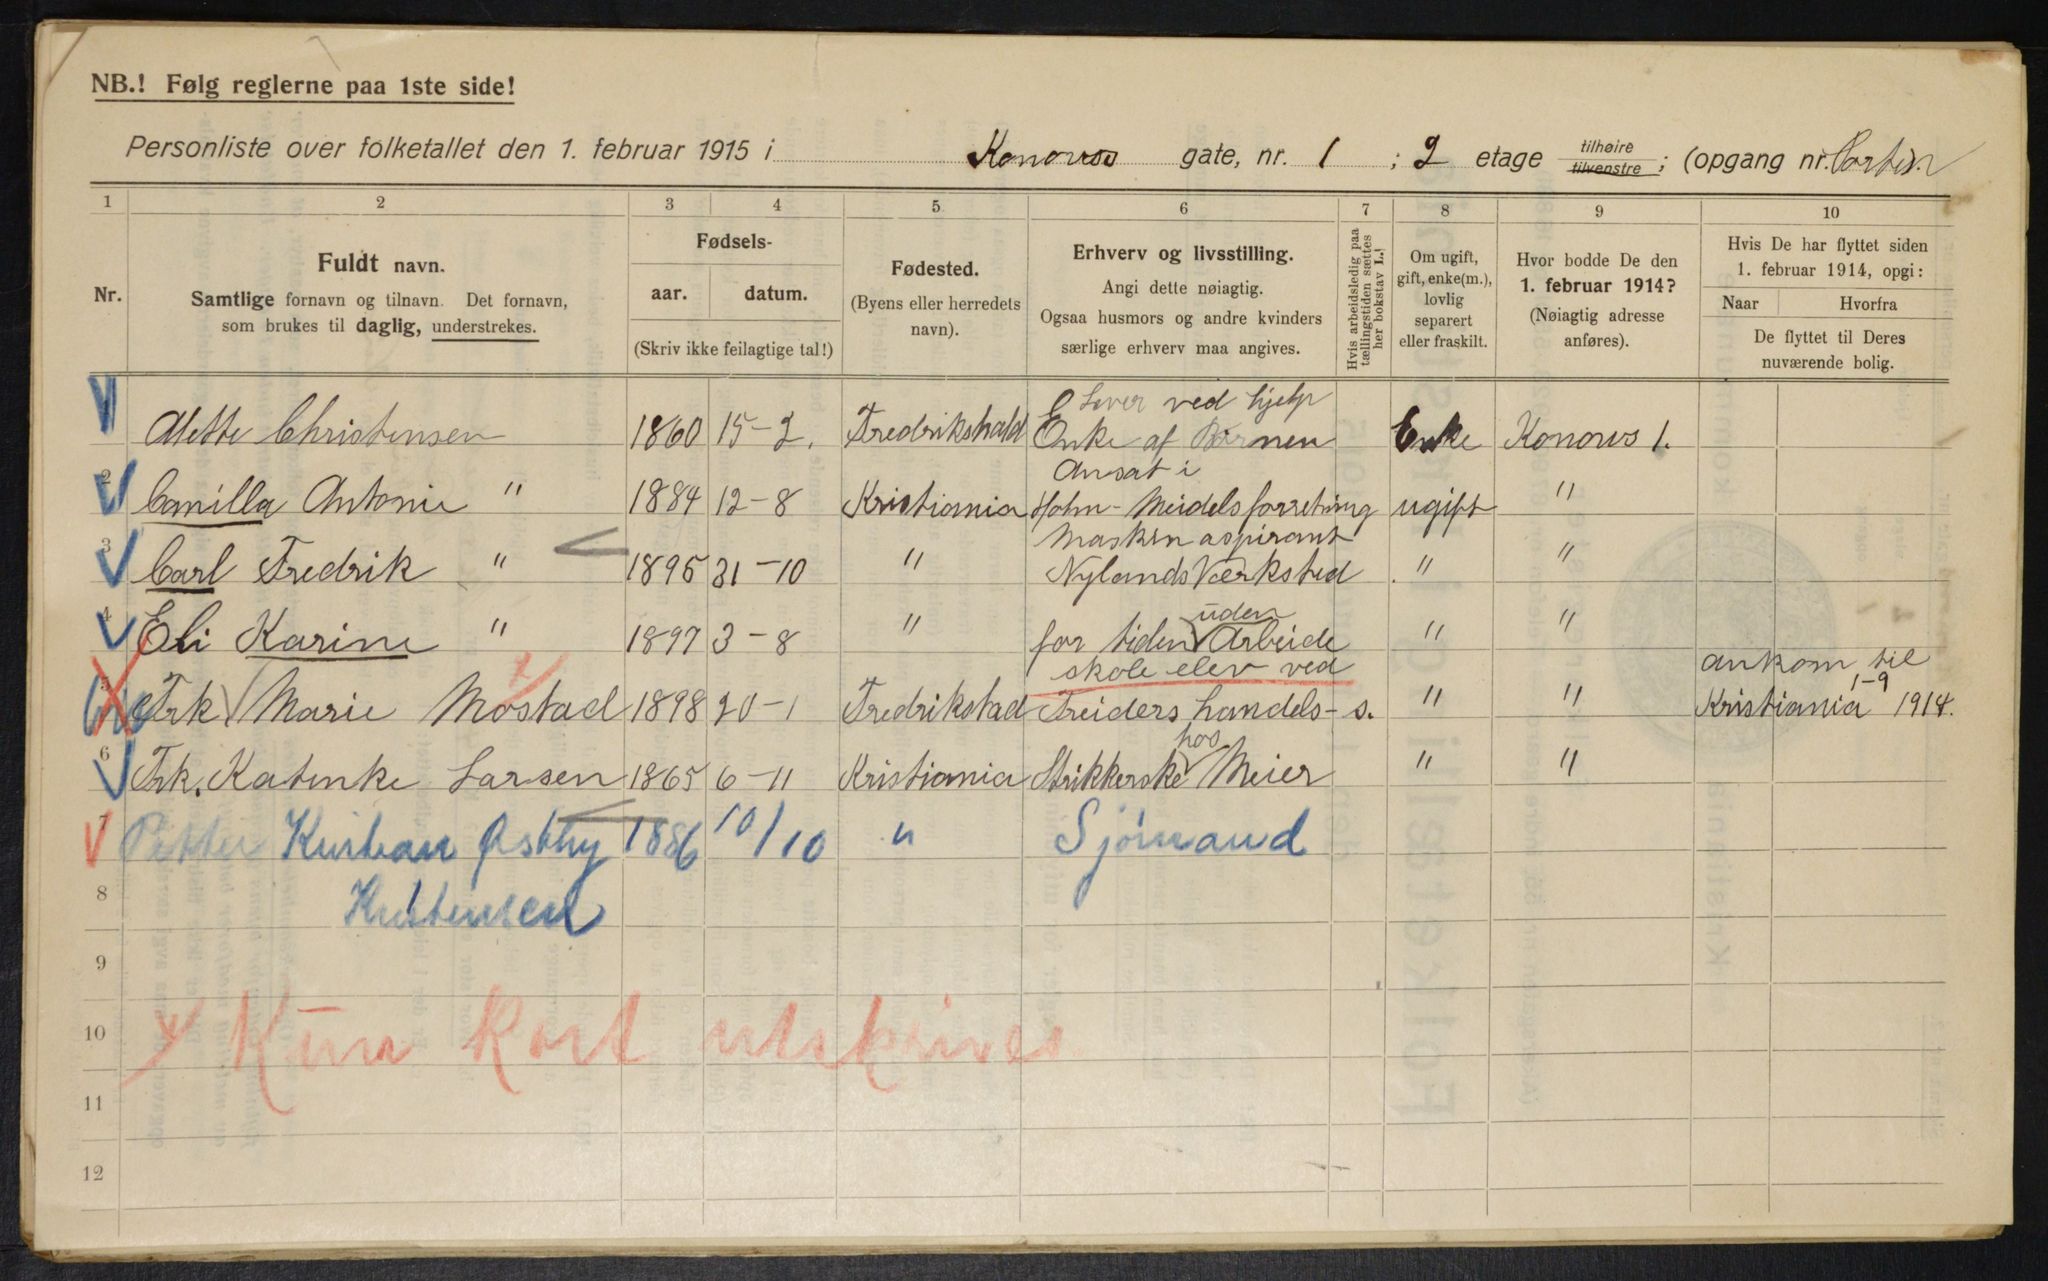 NB.! Følg reglerne paa 1ste side!
Personliste over folketallet den 1. februar 1915 i Konows gate, nr. 1 ; 2 etage tilhøire tilvenstre ; (opgang nr.
1 2 3 4 5 6 7 8 9 10
Nr.
Fuldt navn.
Samtlige fornavn og tilnavn. Det fornavn,
som brukes til daglig, understrekes.
Fødsels-
aar. datum.
(Skriv ikke feilagtige tal!)
Fødested.
(Byens eller herredets
navn).
Erhverv og livsstilling.
Angi dette nøiagtig.
Ogsaa husmors og andre kvinders
særlige erhverv maa angives.
Hvis arbeidsledig paa
tællingstiden sættes
her bokstav L.!
Om ugift,
gift, enke(m.),
lovlig
separert
eller fraskilt.
Hvor bodde De den
1. februar 1914?
(Nøiagtig adresse
anføres).
Hvis De har flyttet siden
1. februar 1914, opgi:
Naar Hvorfra
De flyttet til Deres
nuværende bolig.
Lever ved hjelp
Mette Christensen 1860 15-2. Fredrikshald Enke af Børnen Enke Konows 1.
Ansat i
2 Camilla Antonie " 1884 12-8 Kristiania Holm-Meidels forretning ugift "
Maskin aspirant
3 Carl Fredrik " 1895 31-10 " Nylands Værksted " "
uden
4 Eli Karine " 1897 3-8 " for tiden Arbeide " "
skole elev ved ankom til
5 Frk Marie Mostad x 1898 20-1 Fredrikstad Treiders handels-s. " " Kristiania 1-9 1914.
hos
6 Frk. Katinke Larsen 1865 6-11 Kristiania Strikkerske Meier " "
7 Petter Kristian Østby 1886 10/10 " Sjømand
8 Kristensen
9
10 x Kun kort utskrives
11
12